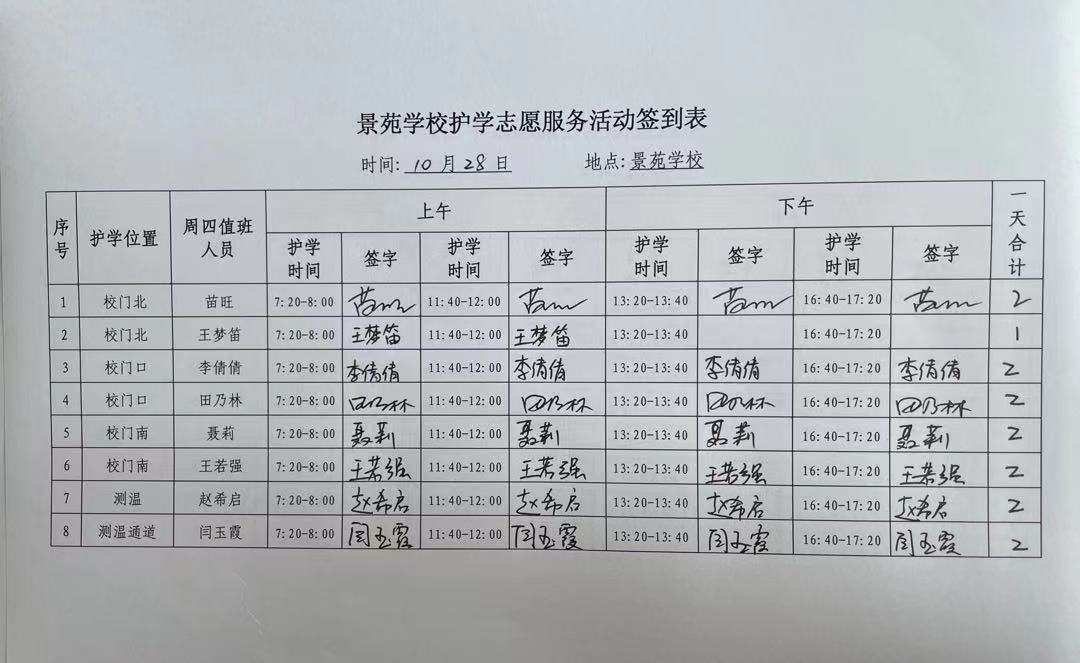 景苑学校护学志愿服务活动签到表
时间: 10 月 28 日 地点: 景苑学校
序号 护学位置 周四值班人员 上午 下午 一天合计
护学时间 签字 护学时间 签字 护学时间 签字 护学时间 签字
1 校门北 苗旺 7:20-8:00 11:40-12:00 13:20-13:40 16:40-17:20 2
2 校门北 王梦笛 7:20-8:00 王梦笛 11:40-12:00 王梦笛 13:20-13:40 16:40-17:20 1
3 校门口 李倩倩 7:20-8:00 李倩倩 11:40-12:00 李倩倩 13:20-13:40 李倩倩 16:40-17:20 李倩倩 2
4 校门口 田乃林 7:20-8:00 田乃林 11:40-12:00 田乃林 13:20-13:40 田乃林 16:40-17:20 田乃林 2
5 校门南 聂莉 7:20-8:00 聂莉 11:40-12:00 聂莉 13:20-13:40 聂莉 16:40-17:20 聂莉 2
6 校门南 王若强 7:20-8:00 王若强 11:40-12:00 王若强 13:20-13:40 王若强 16:40-17:20 王若强 2
7 测温 赵希启 7:20-8:00 赵希启 11:40-12:00 赵希启 13:20-13:40 赵希启 16:40-17:20 赵希启 2
8 测温通道 闫玉霞 7:20-8:00 闫玉霞 11:40-12:00 闫玉霞 13:20-13:40 闫玉霞 16:40-17:20 闫玉霞 2